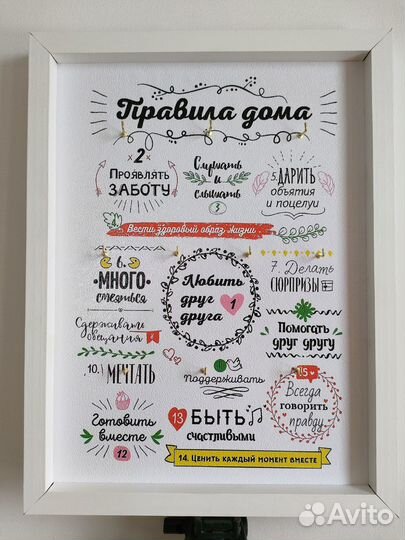 Правила дома
2
Проявлять
ЗАБОТУ
Слушать
и
слышать
3
5. ДАРИТЬ
объятия
и поцелуи
4
Вести здоровый образ жизни
6.
МНОГО
смеяться
Любить
друг
друга
1
7. Делать
СЮРПРИЗЫ
Сдерживать
обещания
Помогать
друг другу
10. МЕЧТАТЬ
Поддерживать
15
Всегда
говорить
правду
Готовить
вместе
12
13 БЫТЬ
счастливыми
14. Ценить каждый момент вместе
Avito